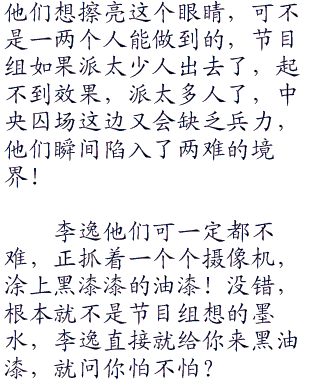 他们想擦亮这个眼睛，可不
是一两个人能做到的，节目
组如果派太少人出去了，起
不到效果，派太多人了，中
央囚场这边又会缺乏兵力，
他们瞬间陷入了两难的境
界！
李逸他们可一定都不
难，正抓着一个个摄像机，
涂上黑漆漆的油漆！没错，
根本就不是节目组想的墨
水，李逸直接就给你来黑油
漆，就问你怕不怕？